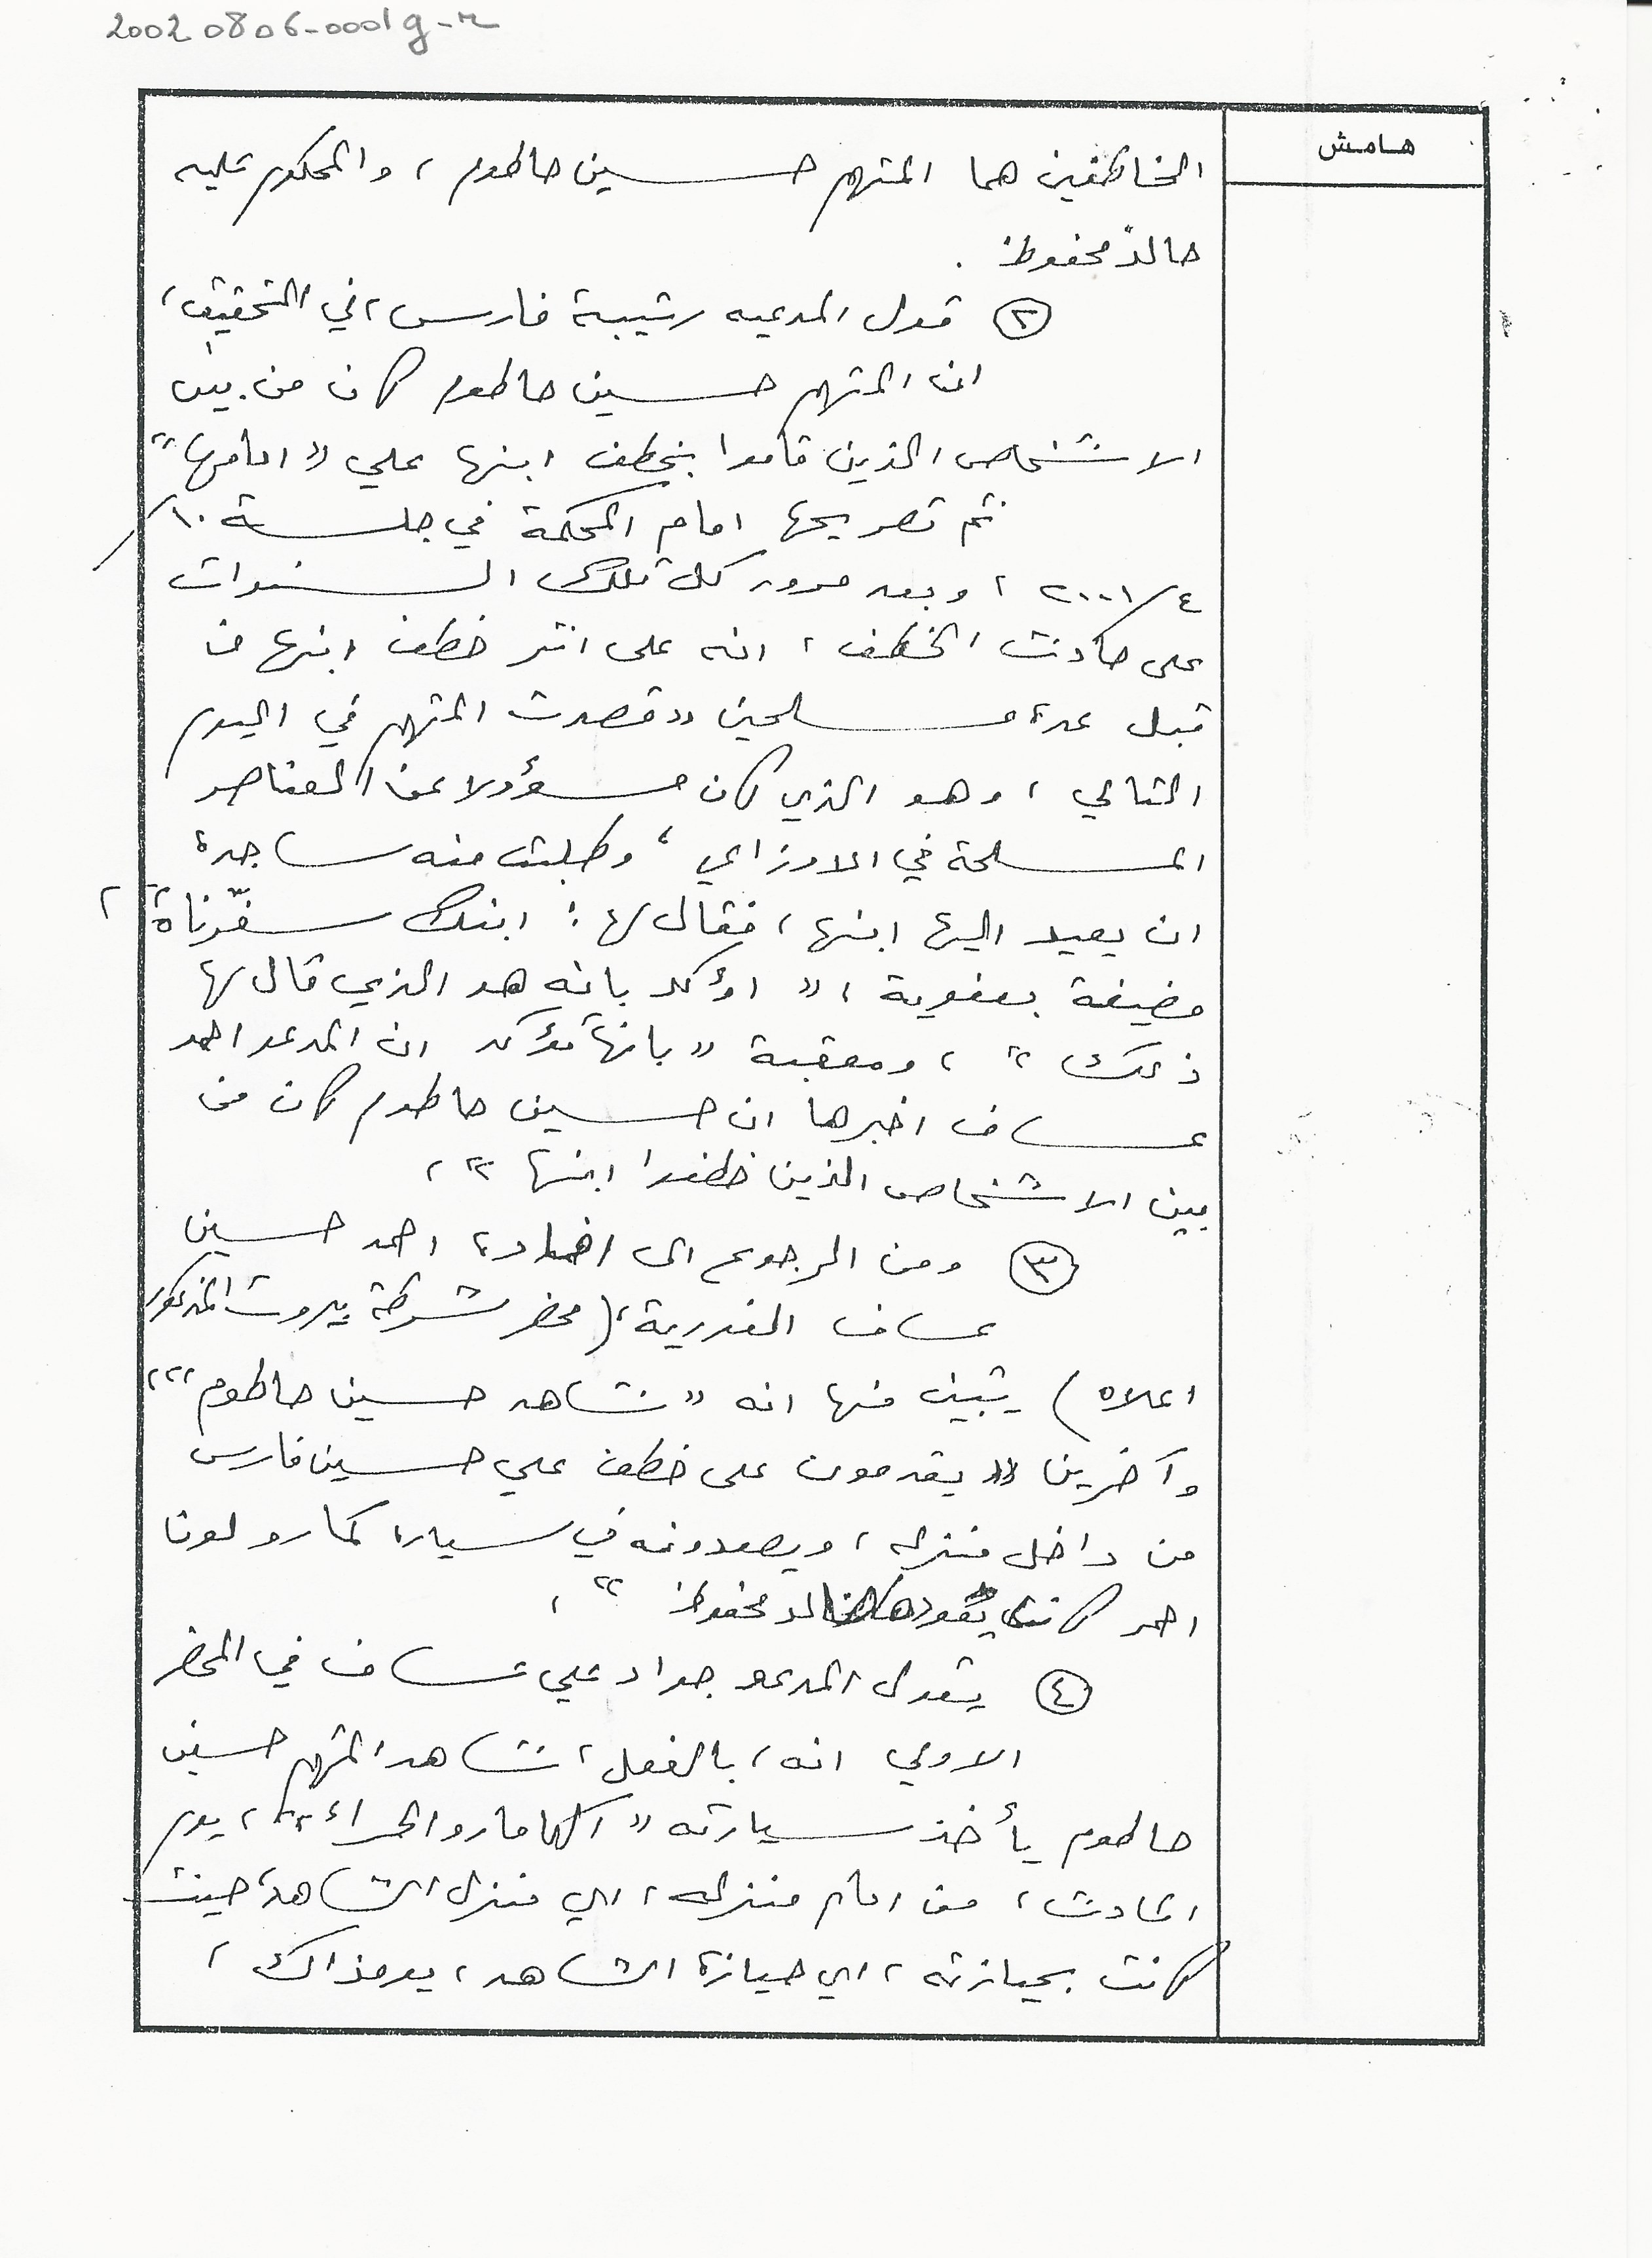 20020806-0001g-r
هامش
الخاطفين هما المتهم حسين حاطوم ، والمحكوم عليه
خالد محفوظ .
(٢) قول المدعيه رتيبة فارس ، في التحقيق ،
ان المتهم حسين حاطوم كان من بين
الاشخاص الذين قاموا بخطف ابنها علي « امامها "
ثم تصريحها امام المحكمة في جلسة ١٠/
٤/٢٠٠١ ، وبعد مرور كل تلك السنوات
على حادث الخطف ، انه على اثر خطف ابنها من
قبل عدة مسلحين « قصدت المتهم في اليوم
التالي ، وهو الذي كان مسؤولا عن العناصر
المسلحة في الاوزاعي ، وطلبت منه ساجدة
ان يعيد اليها ابنها ، فقال لها : ابنك سفّرناه " ،
مضيفة بعفوية ، « اؤكد بانه هو الذي قال لها
ذلك " ، ومعقبة « بانها تؤكد ان المدعو احمد
عساف اخبرها ان حسين حاطوم كان من
بين الاشخاص الذين خطفوا ابنها " ،
(٣) ومن الرجوع الى افادة احمد حسين
عساف الفورية ، ( محضر شرطة بيروت المذكور
اعلاه ) يتبين منها انه « شاهد حسين حاطوم " ،
وآخرين « يقدمون على خطف علي حسين فارس
من داخل منزله ، ويصعدونه في سيارة كمارو لونا
احمر كانت يقودها خالد محفوظ " ،
(٤) يقول المدعو جواد علي عساف في المحضر
الاولي انه ، بالفعل ، شاهد المتهم حسين
حاطوم يأخذ سيارته « الكامارو الحمراء " ، يوم
الحادث ، من امام منزله ، اي منزل الشاهد ، حيث
كانت بحيازته ، اي حيازة الشاهد ، يومذاك ،